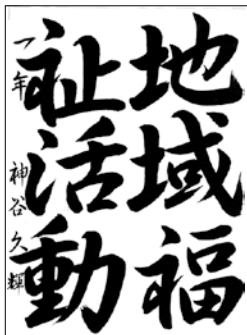 地域福
祉活動
一年 神谷久輝